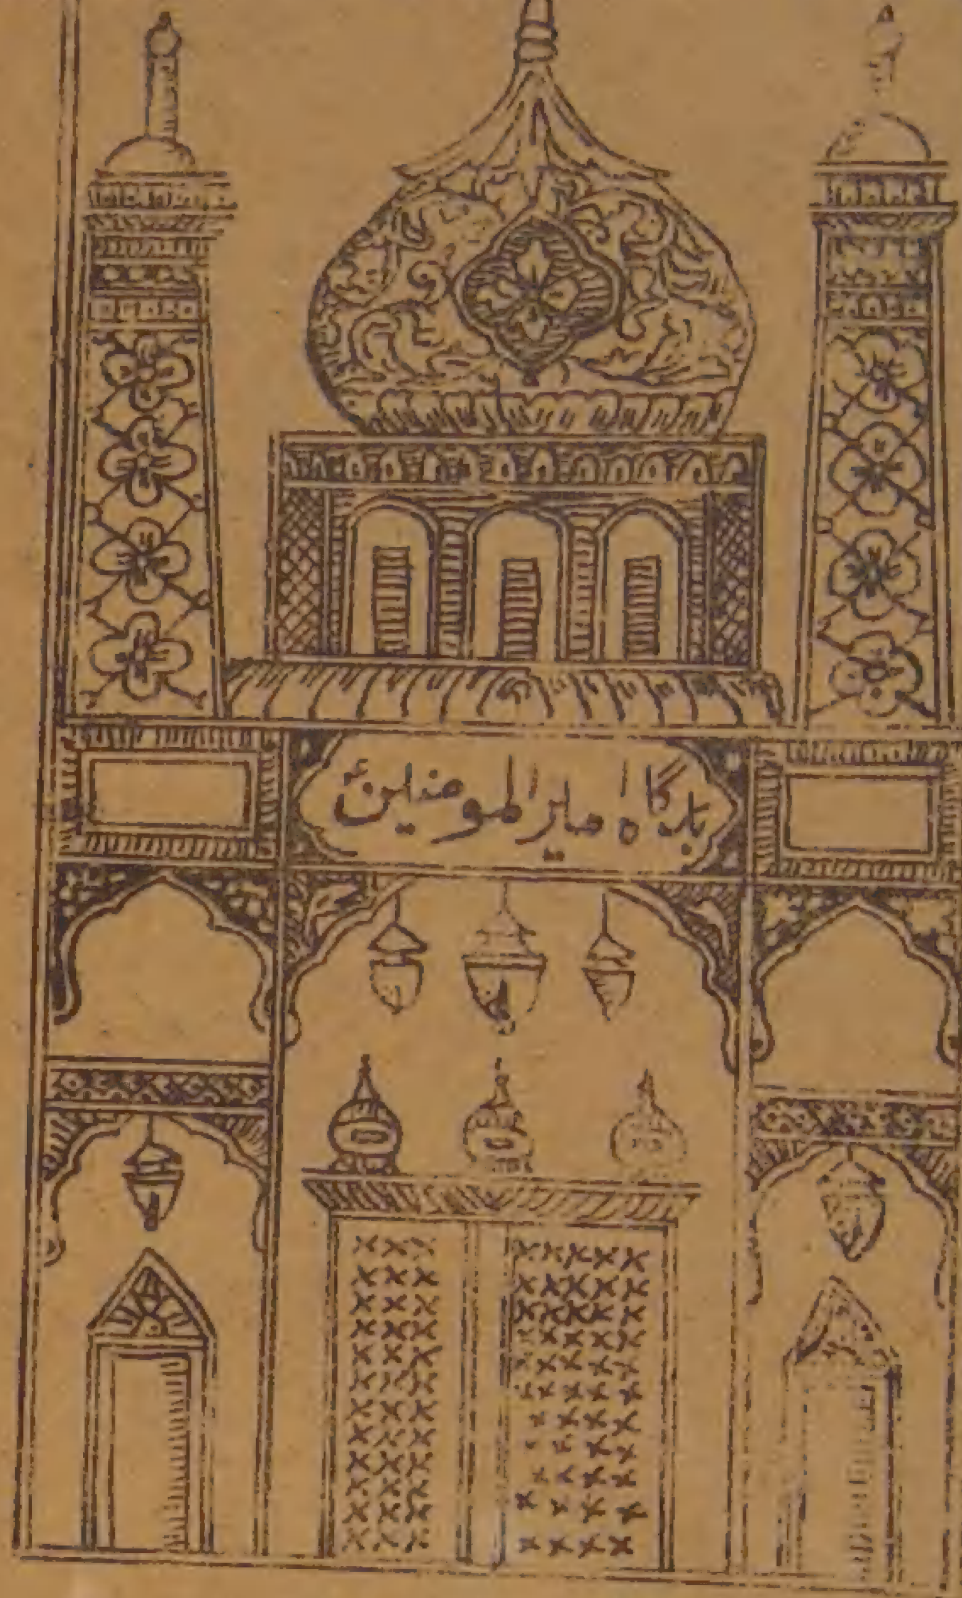 بارگاہ امیرالمومنینؑ